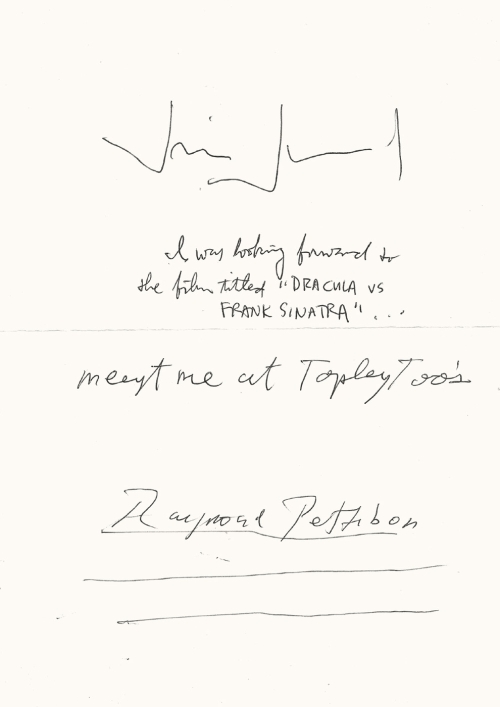 I was looking forward to
the film titled "DRACULA VS
FRANK SINATRA"...
meeyt me at TopleyToo's
Raymond Pettibon